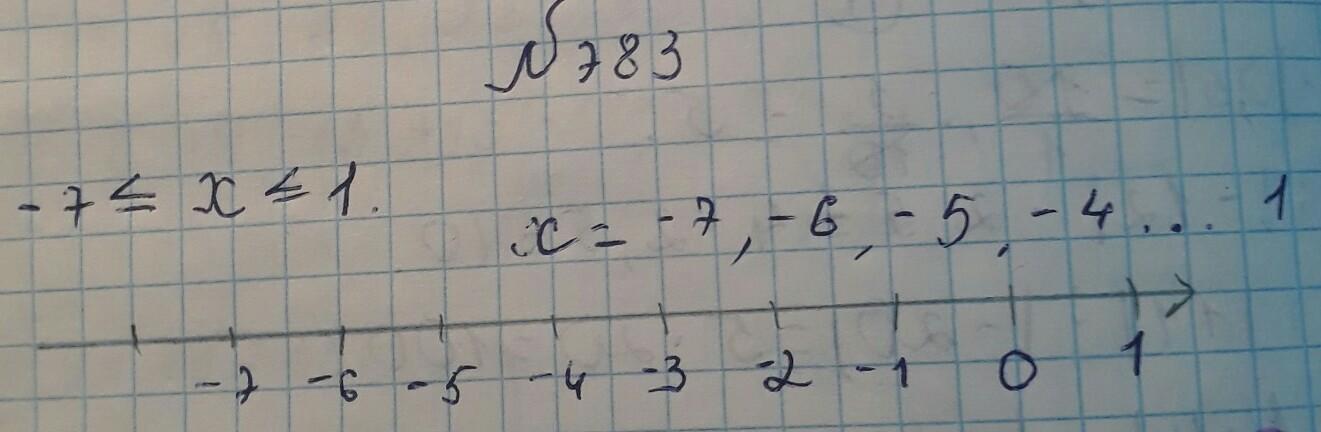 №783
-7 ≤ x ≤ 1.
x = -7, -6, -5, -4... 1
-7 -6 -5 -4 -3 -2 -1 0 1